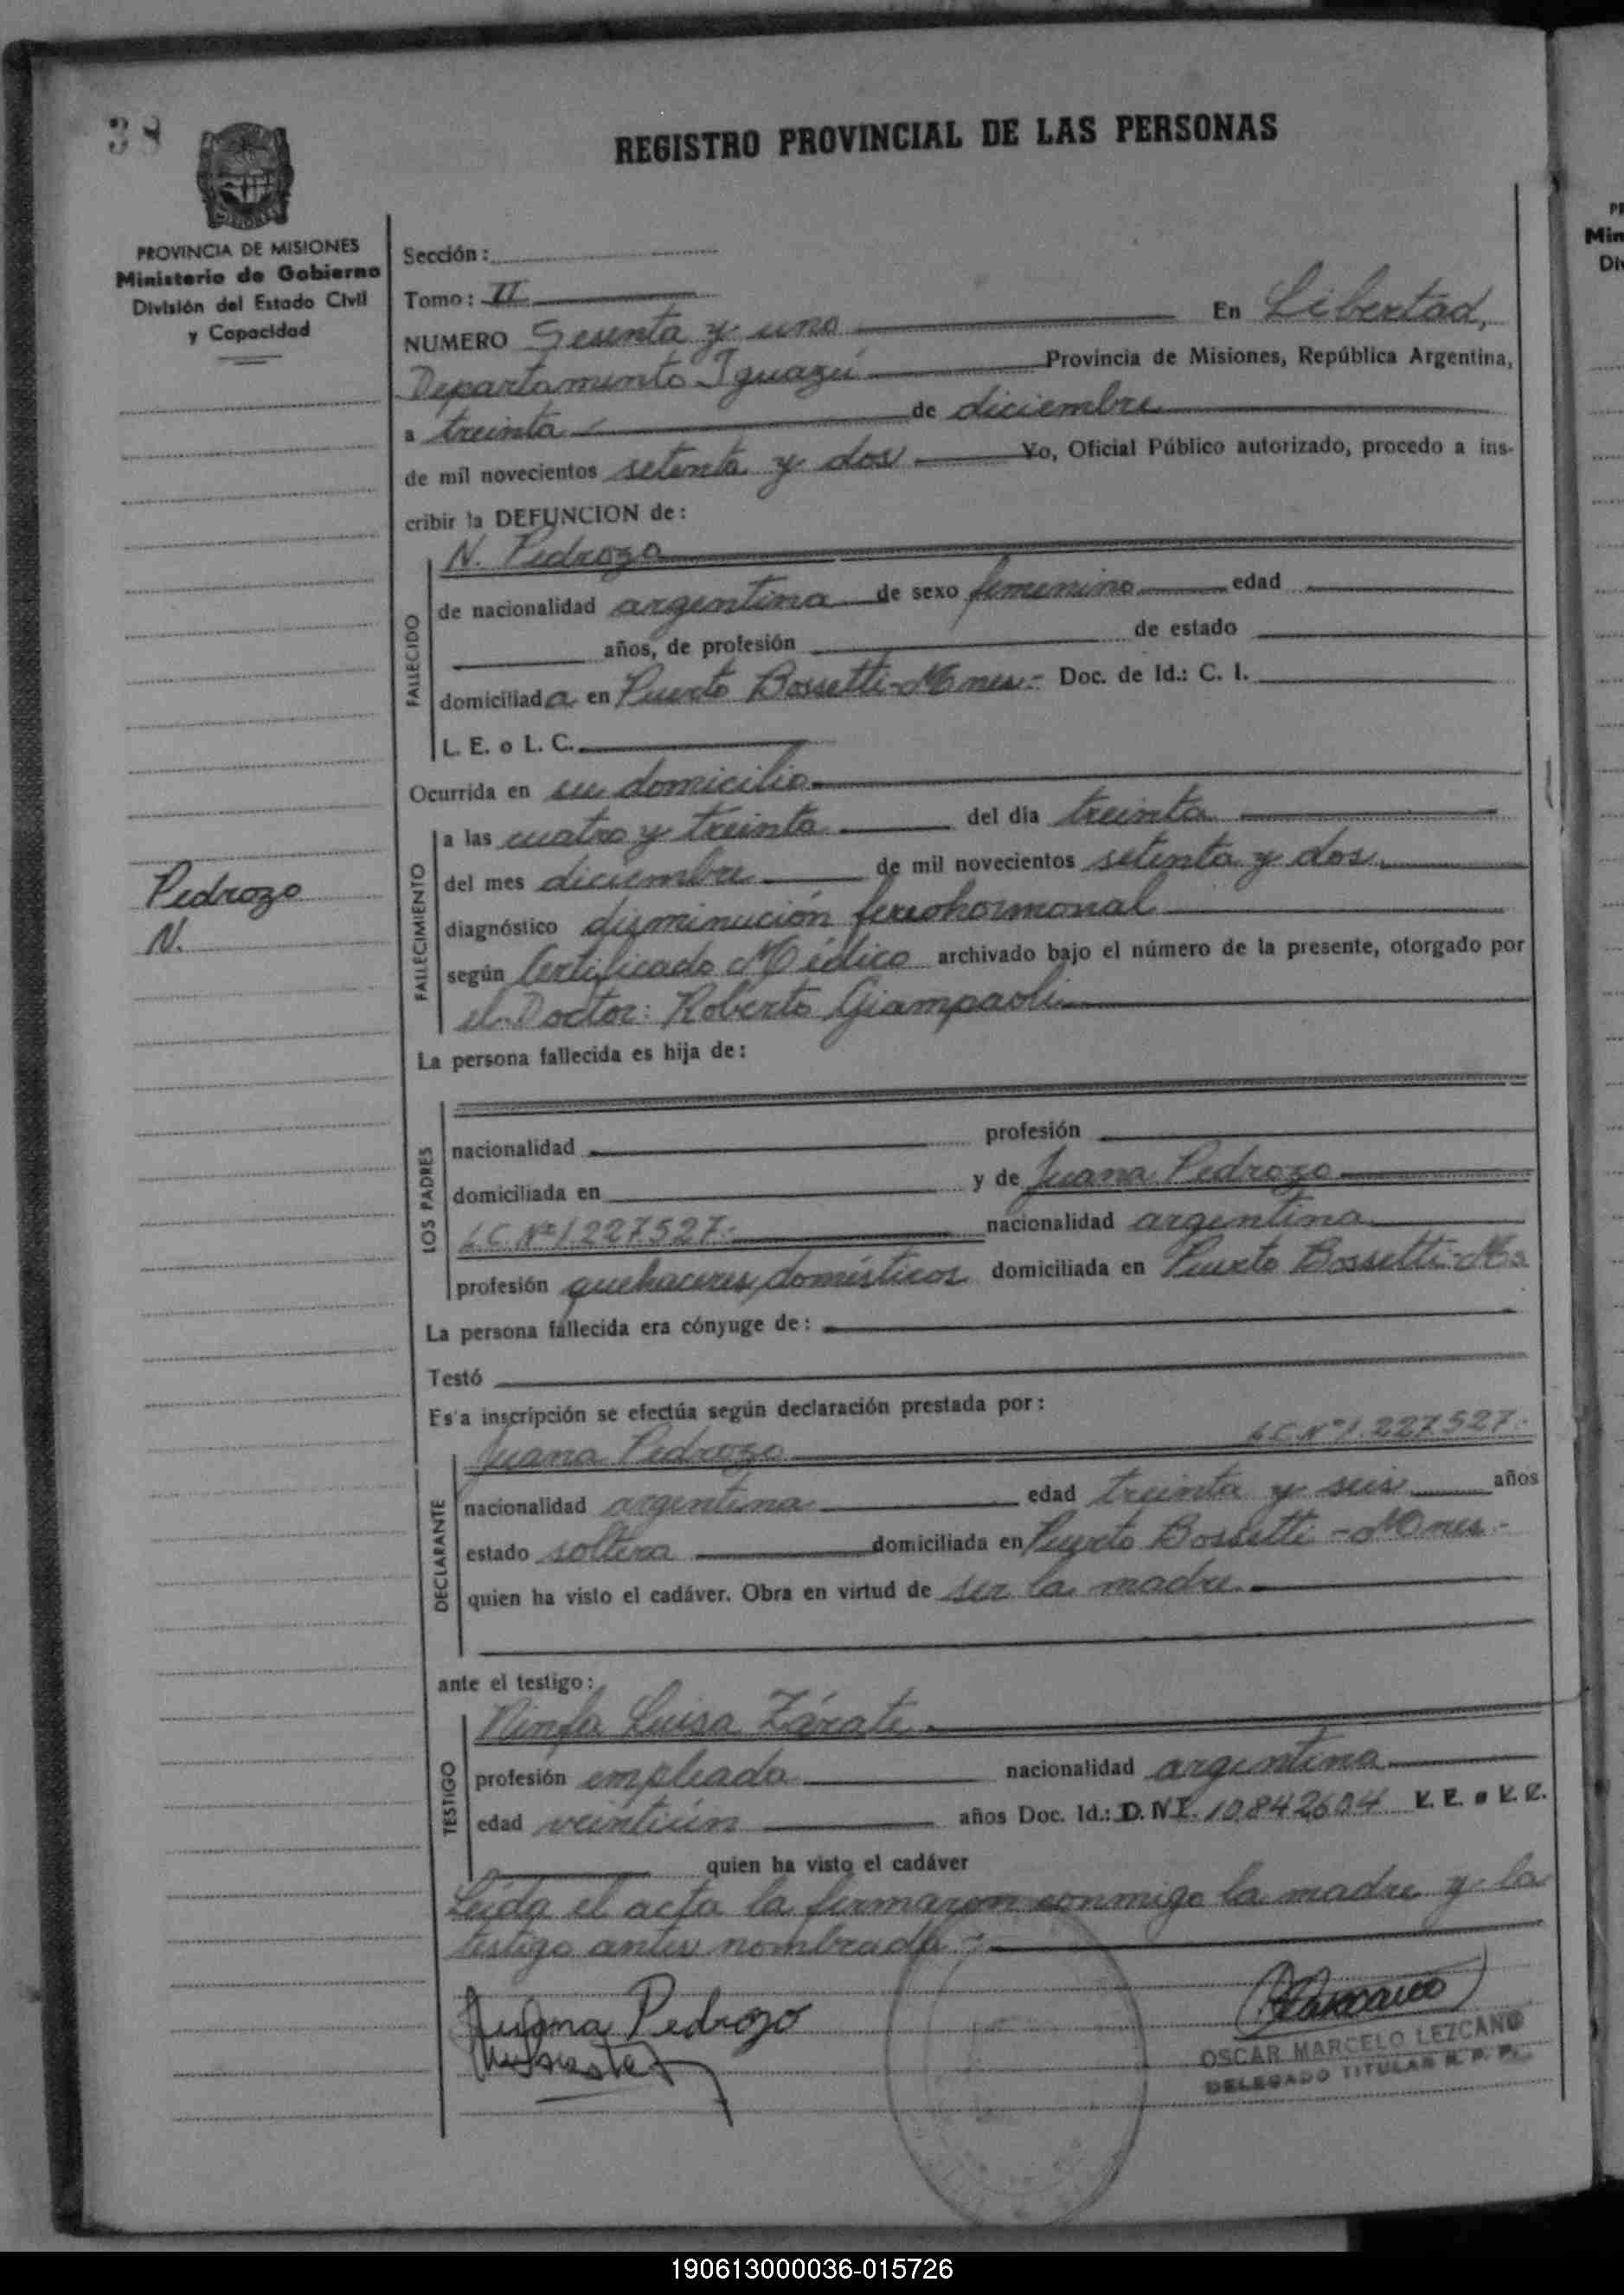 38
REGISTRO PROVINCIAL DE LAS PERSONAS
PROVINCIA DE MISIONES
Ministerio de Gobierno
División del Estado Civil
y Capacidad
Sección:
Tomo: II
NUMERO Sesenta y uno En Libertad,
Departamento Iguazú Provincia de Misiones, República Argentina,
a treinta de diciembre
de mil novecientos setenta y dos Yo, Oficial Público autorizado, procedo a ins-
cribir la DEFUNCION de:
N. Pedrozo
FALLECIDO
de nacionalidad argentina de sexo femenino edad
años, de profesión de estado
domiciliada en Puerto Bossetti-Mnes.- Doc. de Id.: C. I.
L. E. o L. C.
Ocurrida en su domicilio
FALLECIMIENTO
a las cuatro y treinta del día treinta
del mes diciembre de mil novecientos setenta y dos
diagnóstico disminución hormonal
según Certificado Médico archivado bajo el número de la presente, otorgado por
el Doctor: Roberto Giampaoli
Pedrozo
N.
La persona fallecida es hija de:
LOS PADRES
nacionalidad profesión
domiciliada en y de Juana Pedrozo
L.C.Nº1.227527.- nacionalidad argentina
profesión quehaceres domésticos domiciliada en Puerto Bossetti-Ms
La persona fallecida era cónyuge de:
Testó
Es'a inscripción se efectúa según declaración prestada por:
Juana Pedrozo L.C.Nº1.227527.-
DECLARANTE
nacionalidad argentina edad treinta y seis años
estado soltera domiciliada en Puerto Bossetti-Mnes.-
quien ha visto el cadáver. Obra en virtud de ser la madre
ante el testigo:
Ninfa Luisa Zárate
TESTIGO
profesión empleada nacionalidad argentina
edad veintiún años Doc. Id.: D.NI. 10.842604 L. E. o L. C.
quien ha visto el cadáver
Leída el acta la firmaron conmigo la madre y la
testigo antes nombrada.-
Juana Pedrozo
OSCAR MARCELO LEZCANO
DELEGADO TITULAR R. P. P.
190613000036-015726